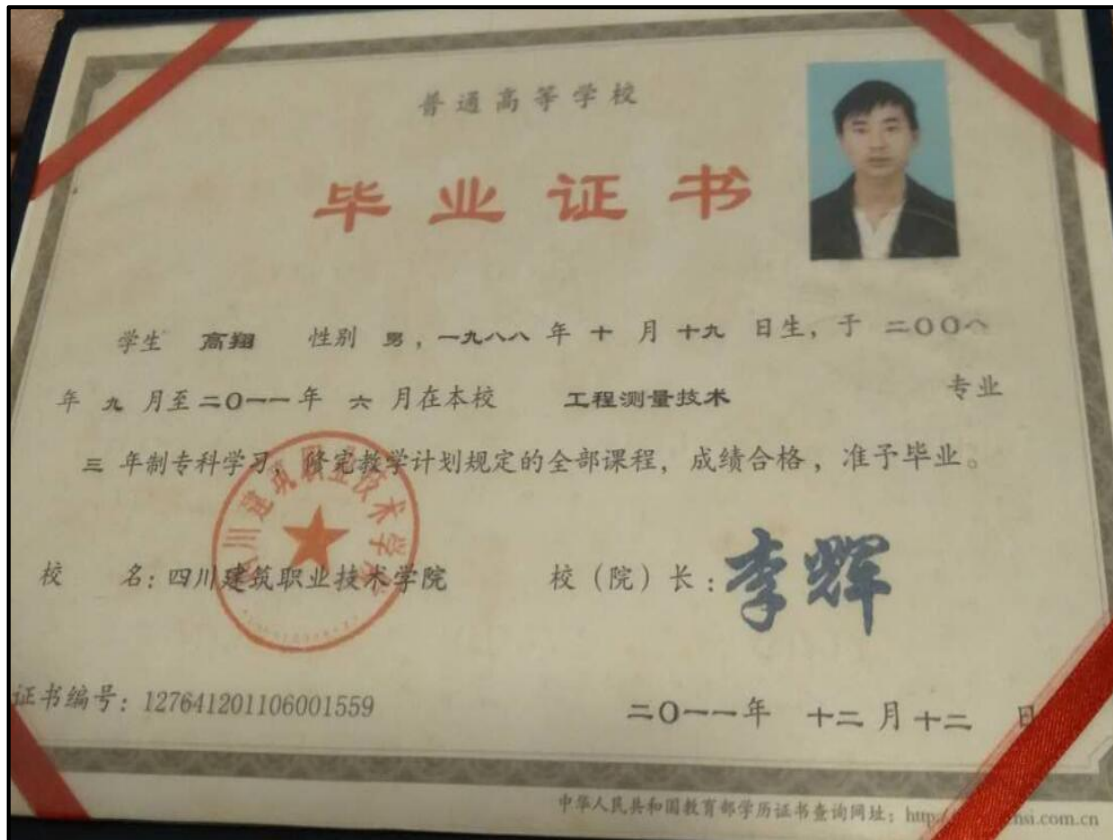 普通高等学校
毕业证书
学生 高翔 性别 男，一九八八 年 十 月 十九 日生，于 二〇〇八
年 九 月至 二〇一一 年 六 月在本校 工程测量技术 专业
三 年制专科学习，修完教学计划规定的全部课程，成绩合格，准予毕业。
四川建筑职业技术学院
校 名：四川建筑职业技术学院 校（院）长：李辉
证书编号：127641201106001559 二〇一一年 十二 月 十二 日
中华人民共和国教育部学历证书查询网址：http si.com.cn